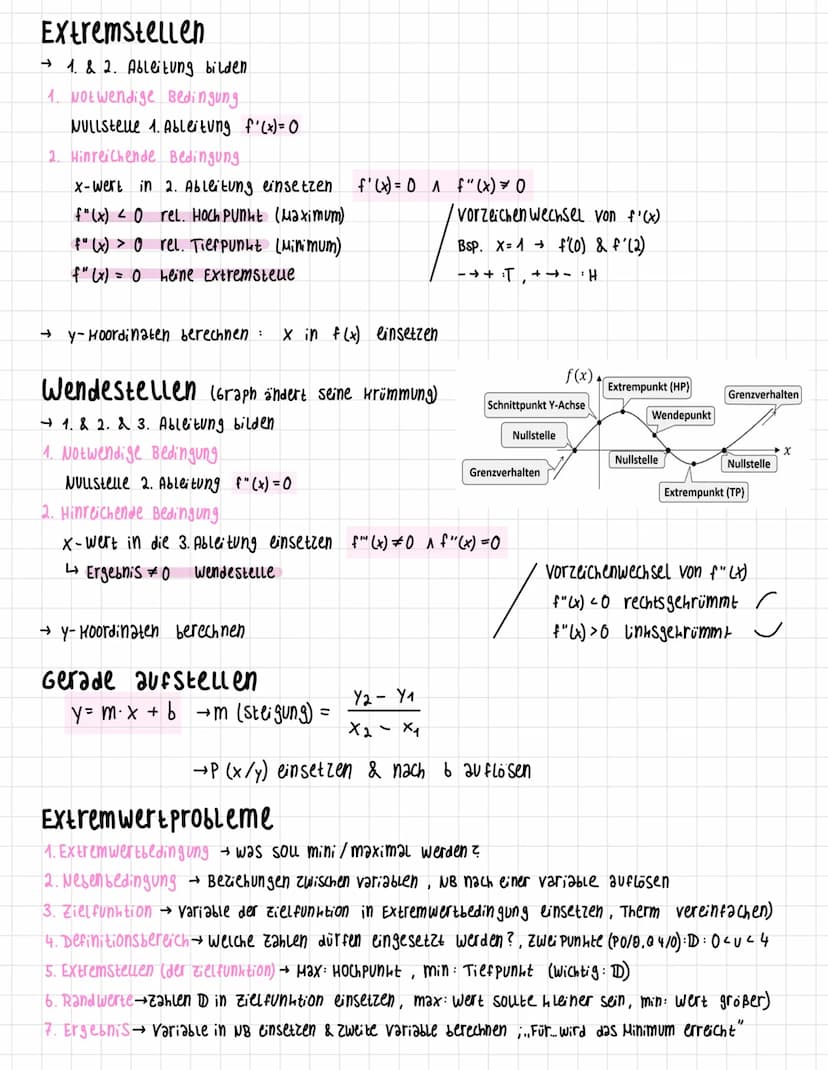 Extremstellen
→ 1. & 2. Ableitung bilden
1. Notwendige Bedingung
Nullstelle 1. Ableitung f'(x)=0
2. Hinreichende Bedingung
x-Wert in 2. Ableitung einsetzen f'(x)=0 ∧ f"(x)≠0
f"(x) < 0 rel. Hochpunkt (Maximum) / Vorzeichenwechsel von f'(x)
f"(x) > 0 rel. Tiefpunkt (Minimum) Bsp. x=1 → f'(0) & f'(2)
f"(x) = 0 keine Extremstelle -→+ :T , +→- :H
→ y-Koordinaten berechnen : x in f(x) einsetzen
Wendestellen (Graph ändert seine Krümmung)
→ 1. & 2. & 3. Ableitung bilden
1. Notwendige Bedingung
Nullstelle 2. Ableitung f"(x)=0
2. Hinreichende Bedingung
x-Wert in die 3. Ableitung einsetzen f'''(x)≠0 ∧ f"(x)=0
↳ Ergebnis ≠ 0 Wendestelle
→ y-Koordinaten berechnen
f(x)
Extrempunkt (HP)
Grenzverhalten
Schnittpunkt Y-Achse
Wendepunkt
Nullstelle
x
Nullstelle
Nullstelle
Grenzverhalten
Extrempunkt (TP)
/ Vorzeichenwechsel von f"(x)
f"(x) <0 rechtsgekrümmt
f"(x) >0 linksgekrümmt
Gerade aufstellen
y= m·x + b → m (Steigung) = y2 - y1 / x2 - x1
→ P (x/y) einsetzen & nach b auflösen
Extremwertprobleme
1. Extremwertbedingung → was soll mini/maximal werden?
2. Nebenbedingung → Beziehungen zwischen Variablen , NB nach einer Variable auflösen
3. Zielfunktion → Variable der Zielfunktion in Extremwertbedingung einsetzen, Therm vereinfachen)
4. Definitionsbereich → welche Zahlen dürfen eingesetzt werden?, zwei Punkte (P0/0,Q 4/0):𝔻: 0<u<4
5. Extremstellen (der Zielfunktion) → Max: Hochpunkt , min: Tiefpunkt (wichtig: 𝔻)
6. Randwerte → Zahlen 𝔻 in Zielfunktion einsetzen, max: Wert sollte kleiner sein, min: Wert größer)
7. Ergebnis → Variable in NB einsetzen & zweite Variable berechnen ; „Für...wird das Minimum erreicht"